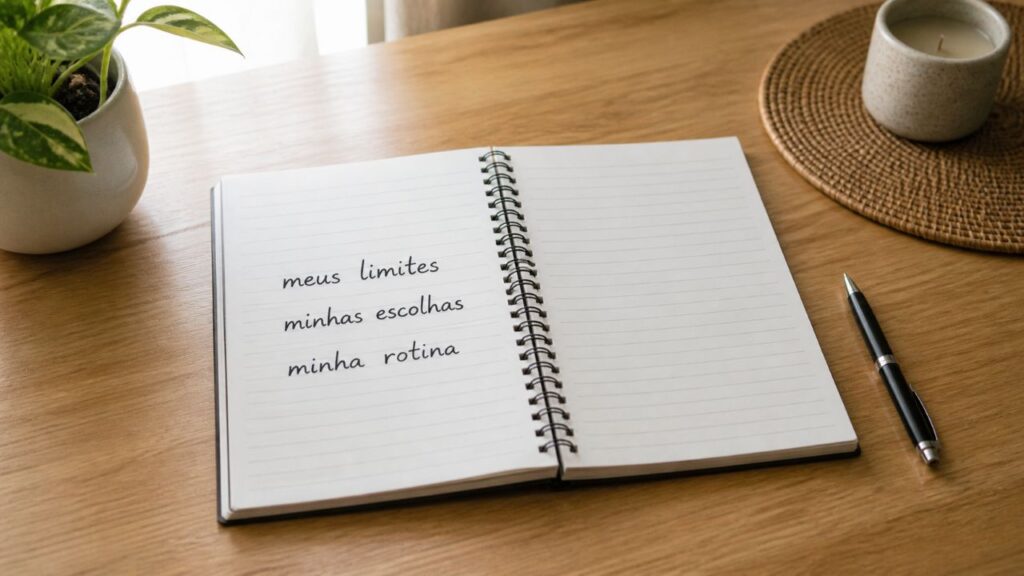 meus limites
minhas escolhas
minha rotina